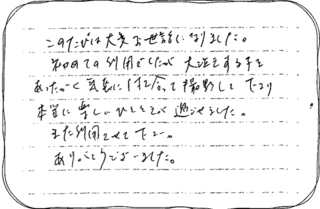 このたびは大変お世話になりました。
初めての利用でしたが 大注をする子を
あたたかく気長に付き合って撮影して下さり
本当に楽しいひとときを過ごせました。
また利用させて下さい。
ありがとうございました。